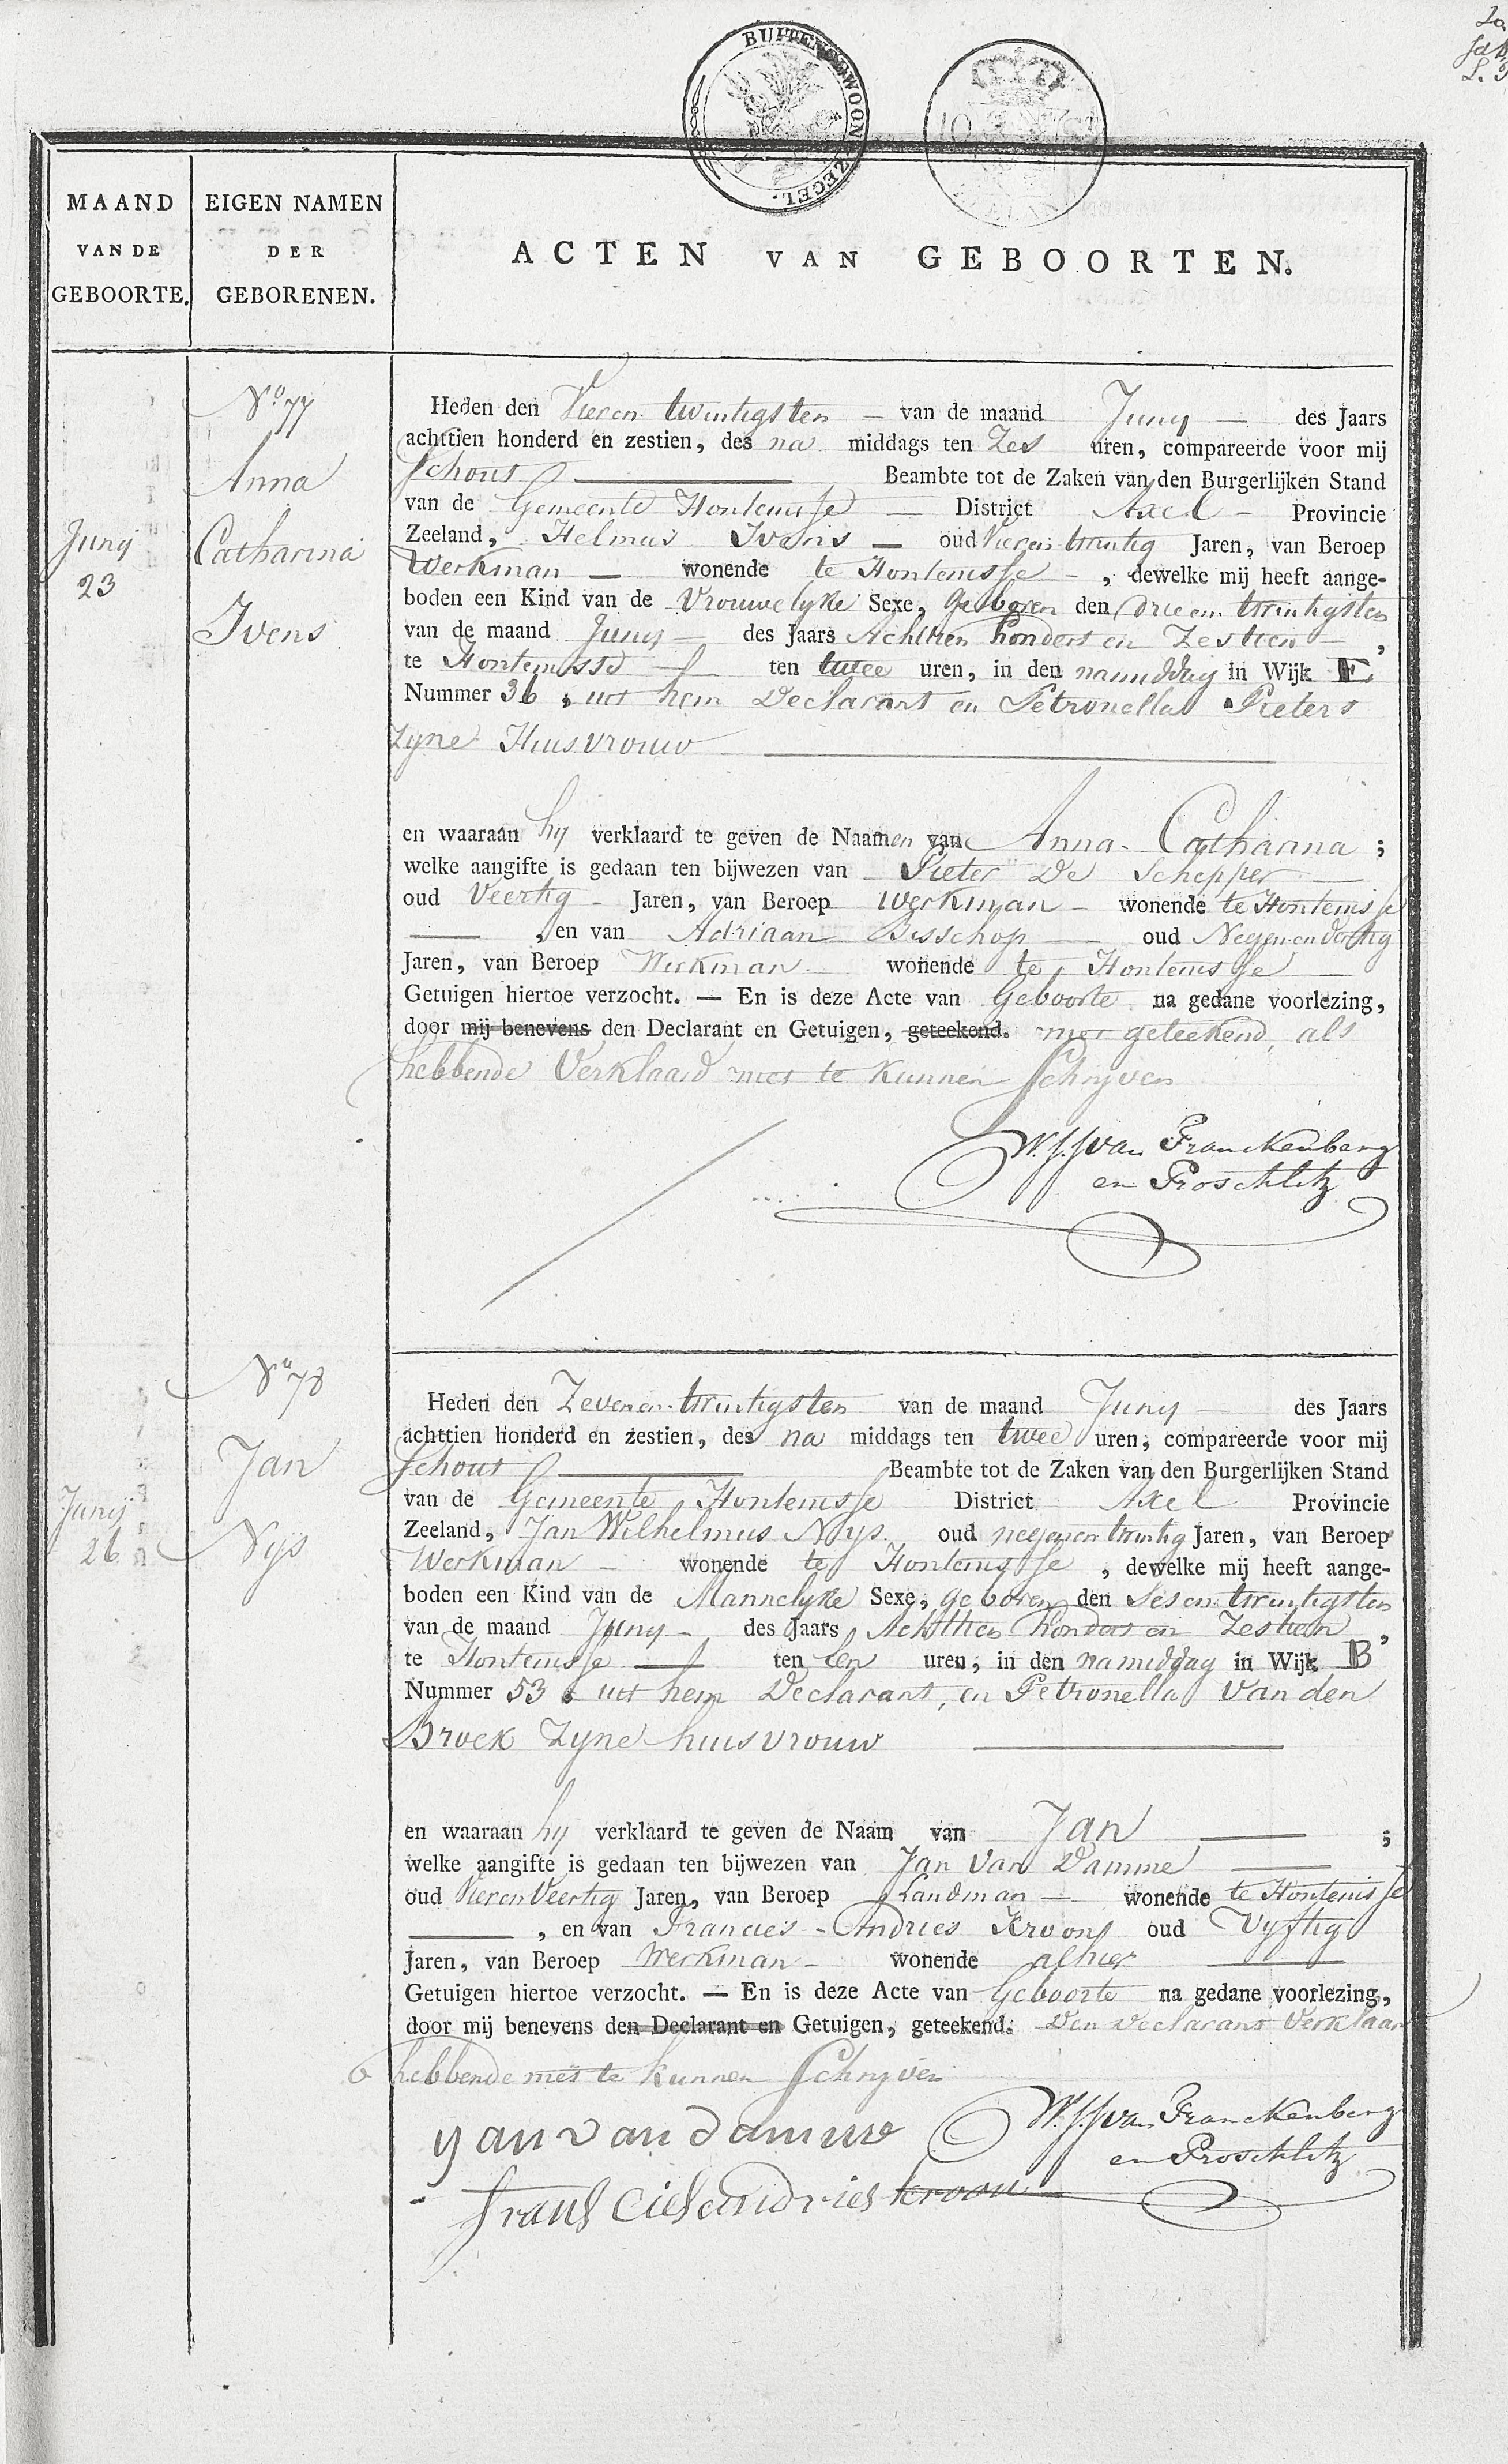 BUITENGEWOON ZEGEL.
MAAND
VAN DE
GEBOORTE.
EIGEN NAMEN
DER
GEBORENEN.
ACTEN VAN GEBOORTEN.
No. 77
Anna
Catharina
Ivens
Junij
23
Heden den Vier en twintigsten — van de maand Juny — des Jaars
achttien honderd en zestien, des na middags ten Zes uren, compareerde voor mij
Schout — Beambte tot de Zaken van den Burgerlijken Stand
van de Gemeente Hontenisse — District Axel — Provincie
Zeeland, Helmus Ivens — oud Vier en twintig Jaren, van Beroep
Werkman — wonende te Hontenisse — , dewelke mij heeft aange-
boden een Kind van de Vrouwelyke Sexe, geboren den drie en twintigsten
van de maand Juny — des Jaars Achttien honderd en Zestien — ,
te Hontenisse — ten twee uren, in den namiddag in Wijk F.
Nummer 36, uit hem Declarant en Petronella Pieters
Zyne Huisvrouw —
en waaraan hy verklaard te geven de Naamen van Anna Catharina ;
welke aangifte is gedaan ten bijwezen van Pieter De Schepper —
oud Veertig — Jaren, van Beroep Werkman — wonende te Hontenisse
— , en van Adriaan Bisschop — oud Negen en dertig
Jaren, van Beroep Werkman — wonende te Hontenisse —
Getuigen hiertoe verzocht. — En is deze Acte van Geboorte na gedane voorlezing,
door mij benevens den Declarant en Getuigen, geteekend. niet geteekend, als
hebbende Verklaard niet te kunnen Schryven
W. J. J van Franckenberg
en Proschlitz
No. 78
Jan
Nys
Junij
26
Heden den Zeven en twintigsten van de maand Juny — des Jaars
achttien honderd en zestien, des na middags ten twee uren, compareerde voor mij
Schout — Beambte tot de Zaken van den Burgerlijken Stand
van de Gemeente Hontenisse District Axel Provincie
Zeeland, Jan Wilhelmus Nys. oud negen en twintig Jaren, van Beroep
Werkman — wonende te Hontenisse , dewelke mij heeft aange-
boden een Kind van de Mannelyke Sexe, geboren den Ses en twintigsten
van de maand Juny — des Jaars Achttien honderd en Zestien ,
te Hontenisse — ten een uren, in den namiddag in Wijk B
Nummer 53, uit hem Declarant, en Petronella Van den
Broek Zyne huisvrouw —
en waaraan hy verklaard te geven de Naam van Jan — ;
welke aangifte is gedaan ten bijwezen van Jan Van Damme —
oud Vier en Veertig Jaren, van Beroep Landman — wonende te Hontenisse
— , en van Francies Andries Kroon oud Vyftig
Jaren, van Beroep Werkman — wonende alhier —
Getuigen hiertoe verzocht. — En is deze Acte van Geboorte na gedane voorlezing,
door mij benevens den Declarant en Getuigen, geteekend. Den Declarant Verklaard
hebbende niet te kunnen Schryven
W. J. J van Franckenberg
en Proschlitz
yan van damme
frans Cies andries kroon